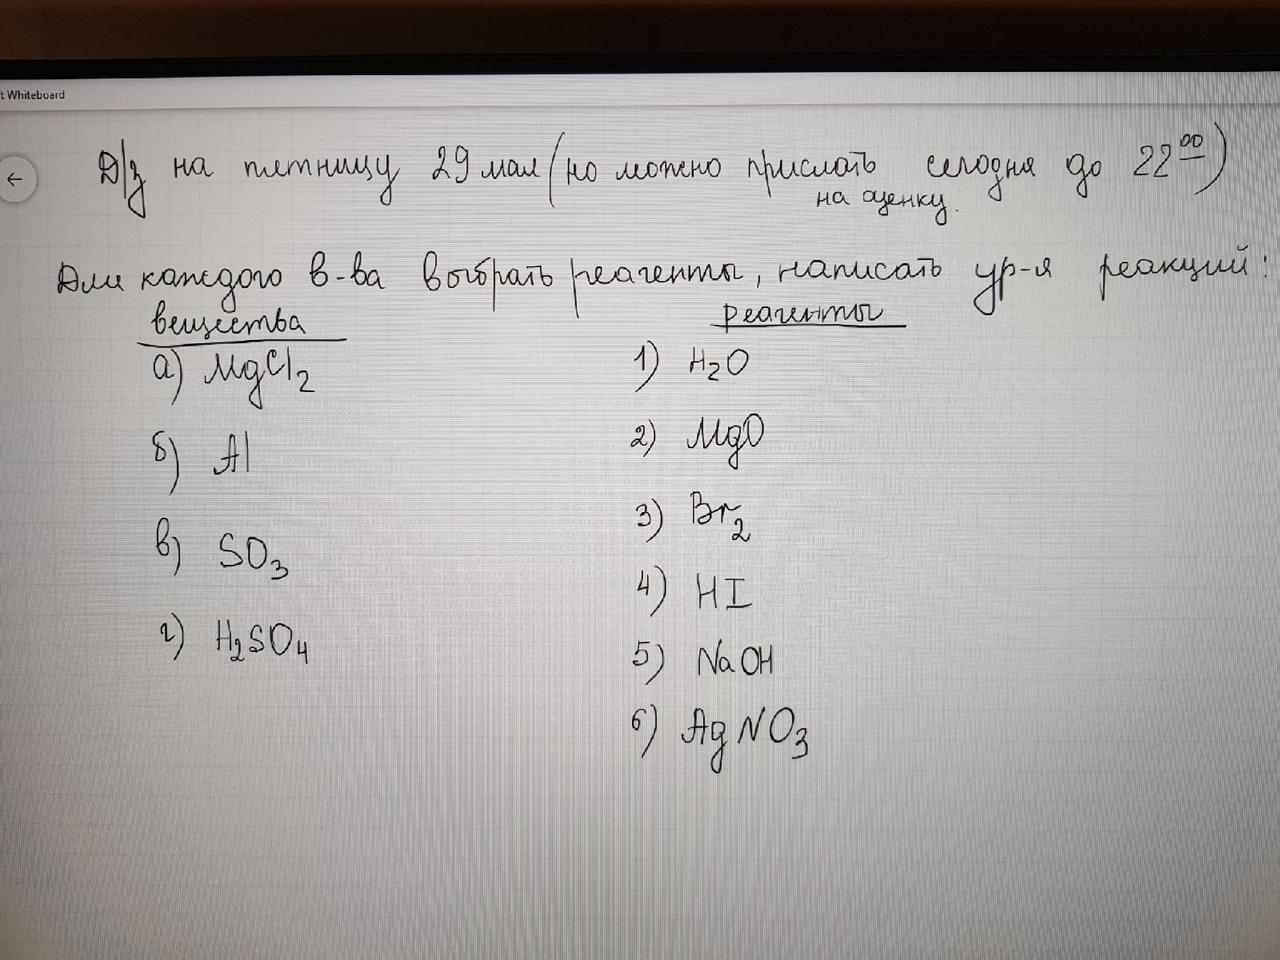 t Whiteboard
Д/з на пятницу 29 мая (но можно прислать сегодня до 22⁰⁰)
на оценку.
Для каждого в-ва выбрать реагенты, написать ур-я реакций:
вещества
реагенты
а) MgCl₂
1) H₂O
2) MgO
б) Al
3) Br₂
в) SO₃
4) HI
г) H₂SO₄
5) NaOH
6) AgNO₃